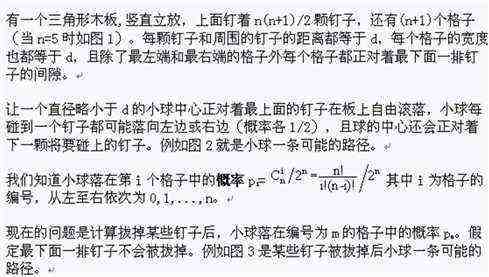 有一个三角形木板,竖直立放,上面钉着n(n+1)/2颗钉子,还有(n+1)个格子
(当n=5时如图1)。每颗钉子和周围的钉子的距离都等于d,每个格子的宽度
也都等于d,且除了最左端和最右端的格子外每个格子都正对着最下面一排钉
子的间隙。
让一个直径略小于d的小球中心正对着最上面的钉子在板上自由滚落,小球每
碰到一个钉子都可能落向左边或右边(概率各1/2),且球的中心还会正对着
下一颗将要碰上的钉子。例如图2就是小球一条可能的路径。
我们知道小球落在第i个格子中的概率 pᵢ= Cₙⁱ/2ⁿ = n!/(i!(n-i)!)/2ⁿ 其中i为格子的
编号,从左至右依次为0,1,...,n。
现在的问题是计算拔掉某些钉子后,小球落在编号为m的格子中的概率pₘ。假
定最下面一排钉子不会被拔掉。例如图3是某些钉子被拔掉后小球一条可能的
路径。